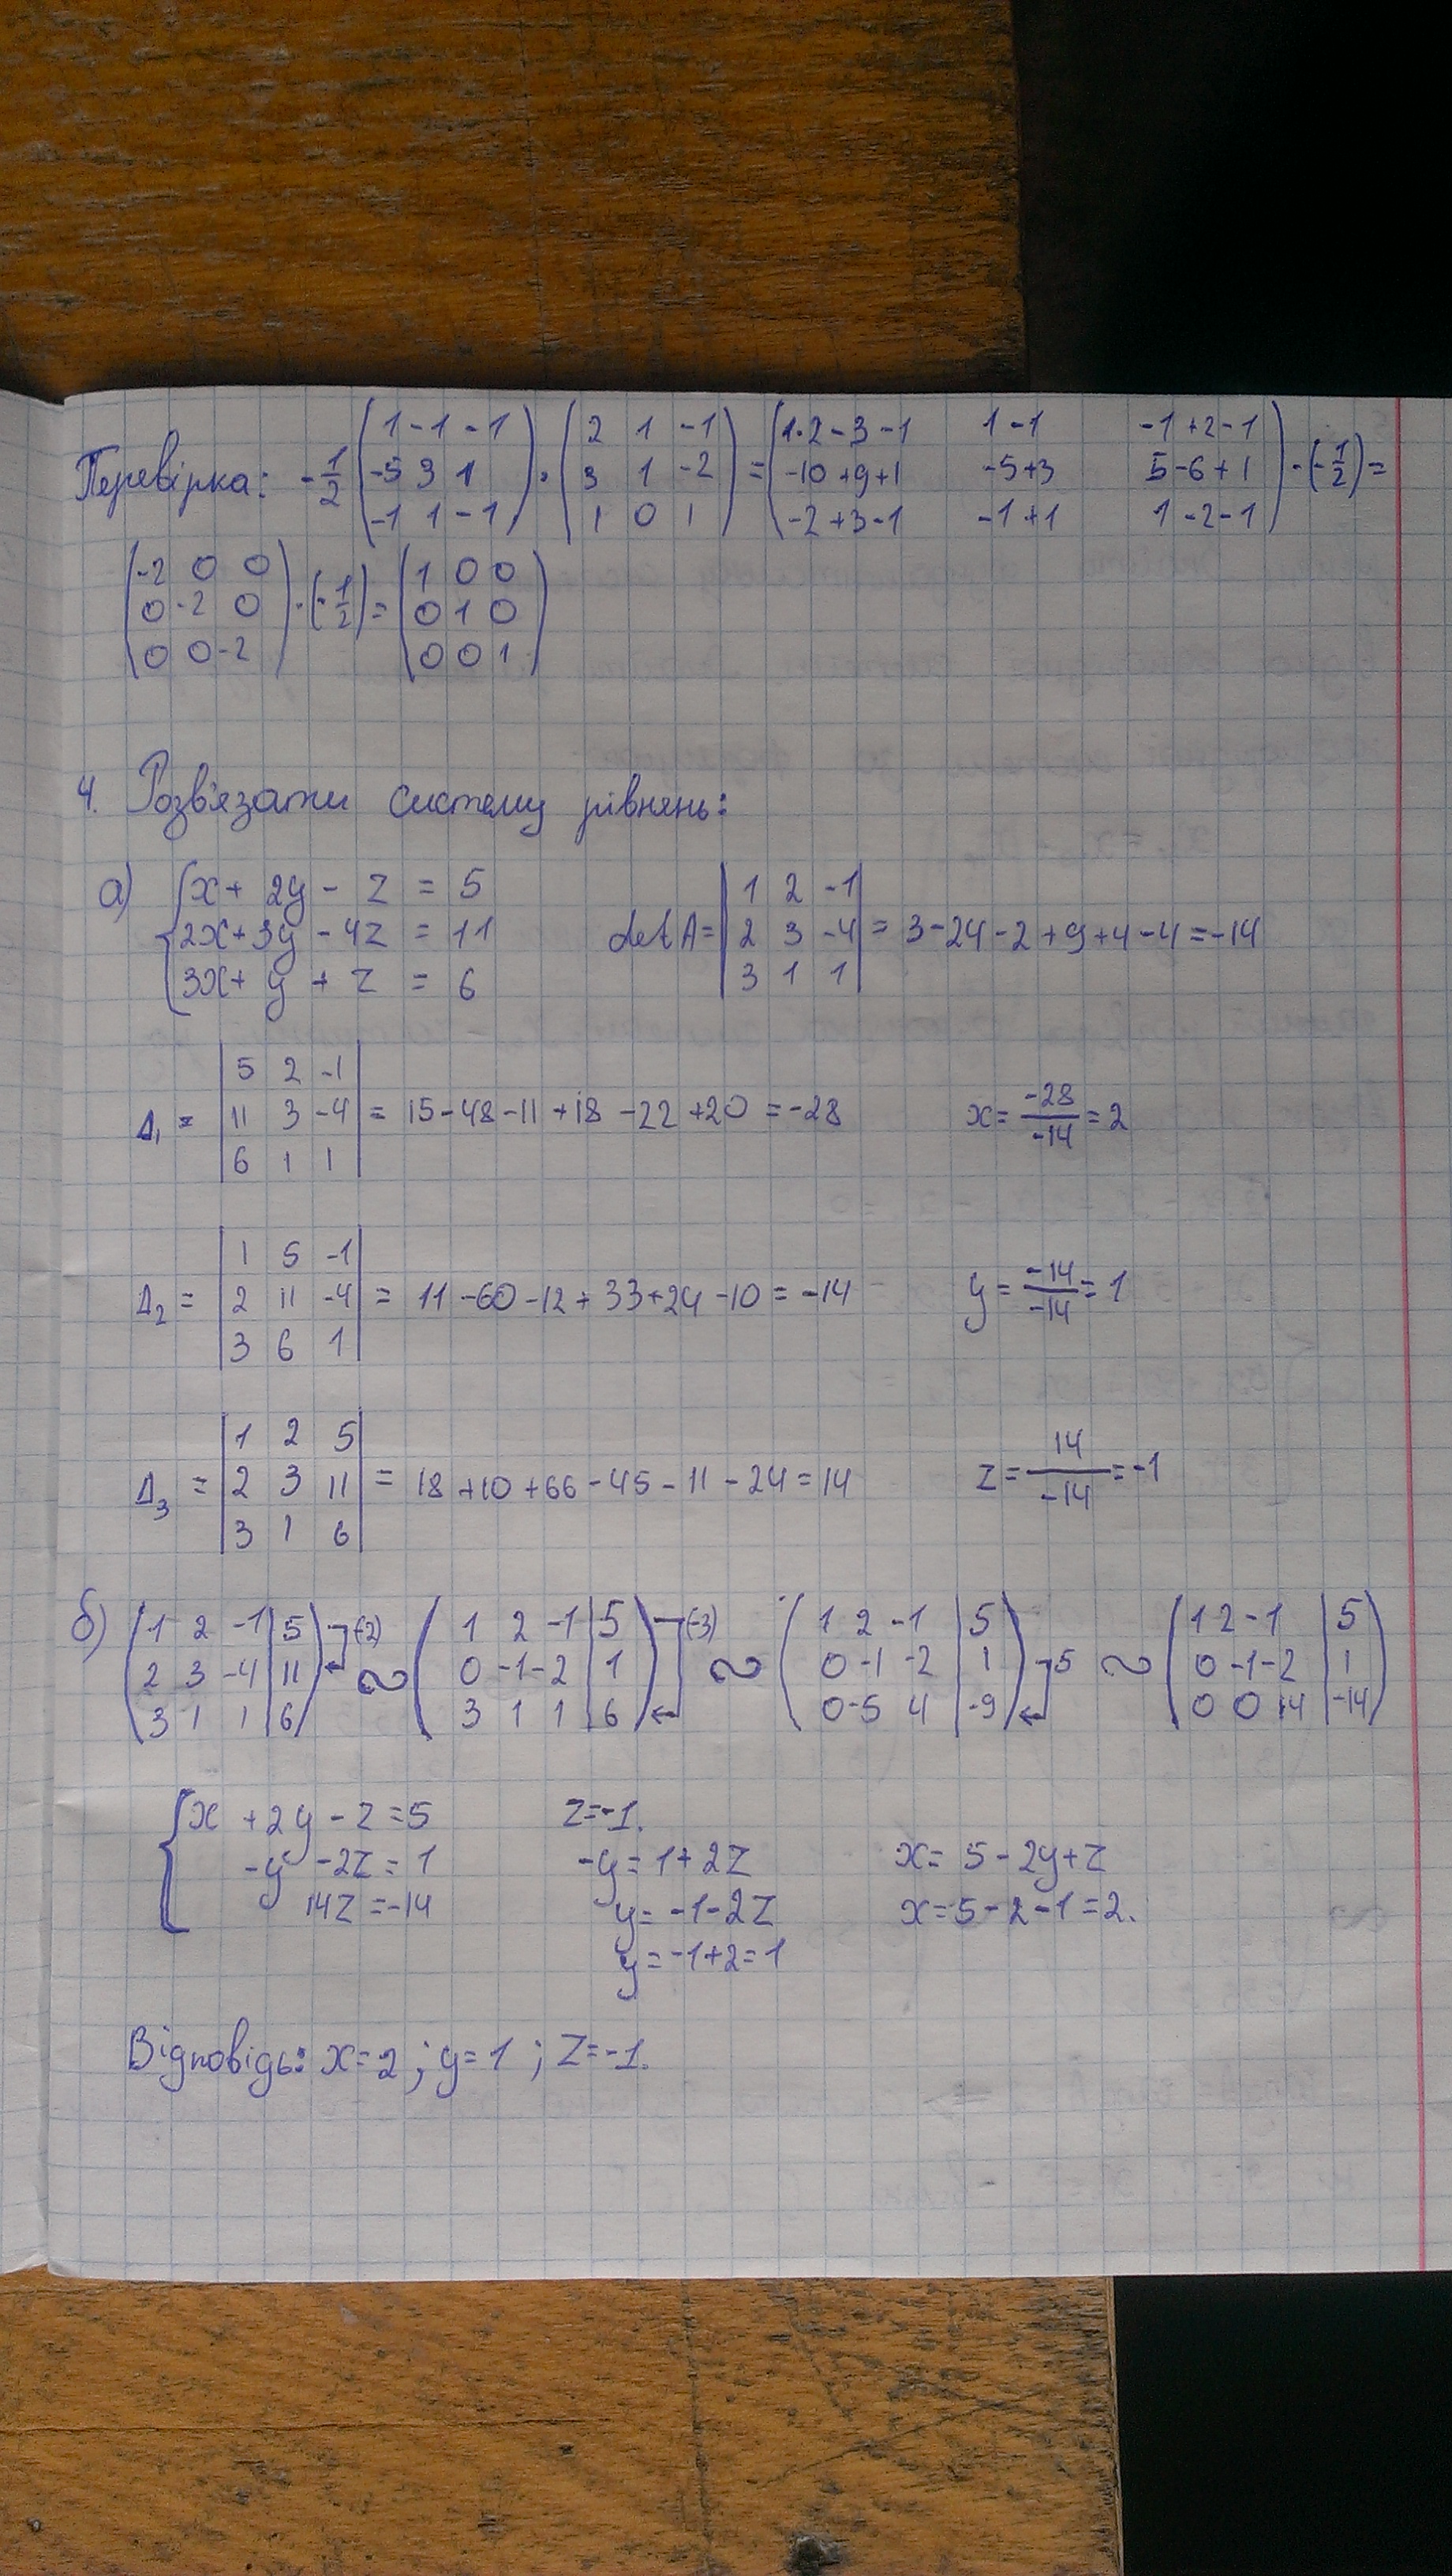 Перевірка: -1/2 (1 -1 -1; -5 3 1; -1 1 -1) · (2 1 -1; 3 1 -2; 1 0 1) = (1·2-3-1 1-1 -1+2-1; -10+9+1 -5+3 5-6+1; -2+3-1 -1+1 1-2-1) · (-1/2) =
(-2 0 0; 0 -2 0; 0 0 -2) · (-1/2) = (1 0 0; 0 1 0; 0 0 1)
4. Розв'язати систему рівнянь:
а) { x + 2y - z = 5
2x + 3y - 4z = 11
3x + y + z = 6
det A = |1 2 -1; 2 3 -4; 3 1 1| = 3-24-2+9+4-4=-14
Δ₁ = |5 2 -1; 11 3 -4; 6 1 1| = 15-48-11+18-22+20=-28 x = -28/-14 = 2
Δ₂ = |1 5 -1; 2 11 -4; 3 6 1| = 11-60-12+33+24-10=-14 y = -14/-14 = 1
Δ₃ = |1 2 5; 2 3 11; 3 1 6| = 18+10+66-45-11-24=14 z = 14/-14 = -1
б) (1 2 -1 | 5; 2 3 -4 | 11; 3 1 1 | 6) (-2) ∾ (1 2 -1 | 5; 0 -1 -2 | 1; 3 1 1 | 6) (-3) ∾ (1 2 -1 | 5; 0 -1 -2 | 1; 0 -5 4 | -9) -5 ∾ (1 2 -1 | 5; 0 -1 -2 | 1; 0 0 14 | -14)
{ x + 2y - z = 5 z=-1.
-y - 2z = 1 -y = 1+2z x = 5-2y+z
14z = -14 y = -1-2z x = 5-2-1=2.
y = -1+2=1
Відповідь: x=2; y=1; z=-1.